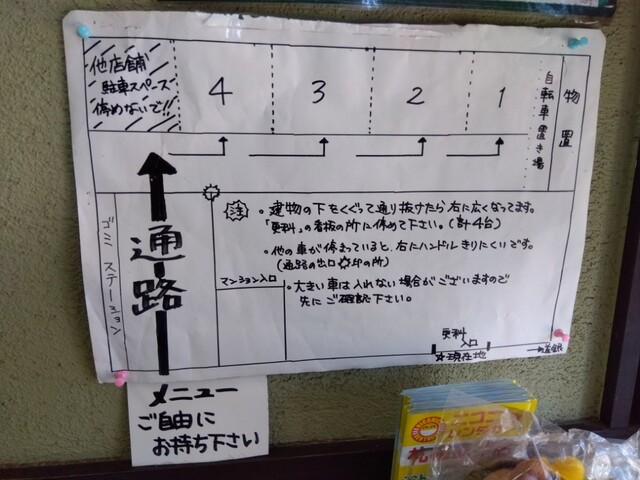 他店舗
駐車スペース
停めないで!!
4
3
2
1
自転車置き場
物置
ゴミステーション
通路
注
・建物の下をくぐって通り抜けたら右に広くなってます。
「更科」の看板の所に停めて下さい。(計4台)
・他の車が停まっていると、右にハンドルきりにくいです。
(通路の出口印の所)
・大きい車は入れない場合がございますので
先にご確認下さい。
マンション入口
更科
入口
☆現在地
メニュー
ご自由に
お持ち下さい